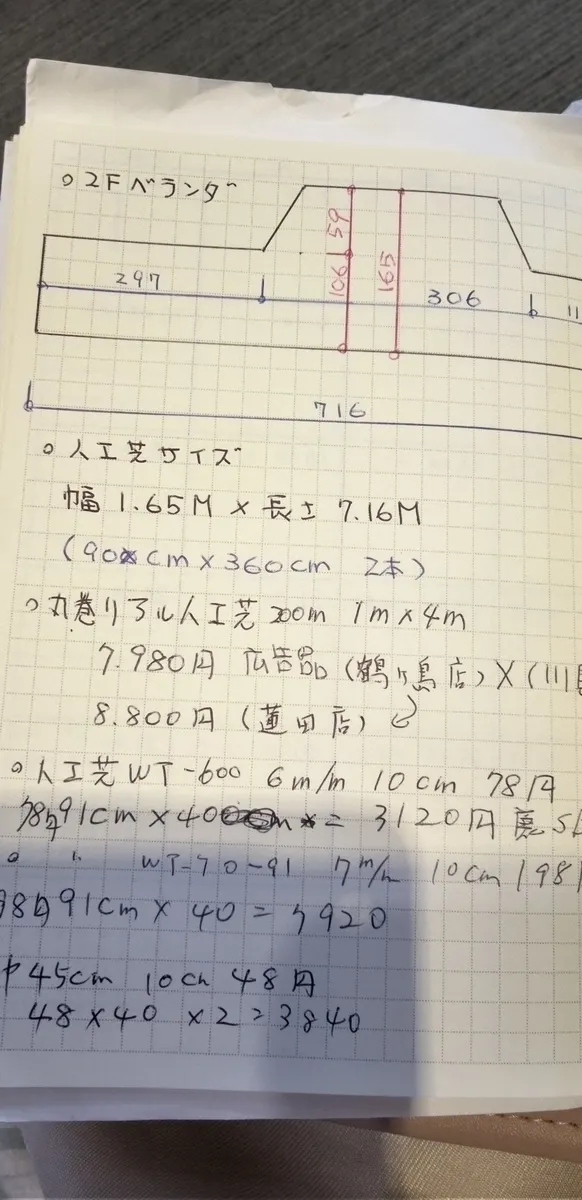 ○2Fベランダ
59
106
165
297
306
11
716
○人工芝サイズ
幅 1.65M × 長さ 7.16M
(90cm × 360cm 2本)
○丸巻リアル人工芝 200m 1m×4m
7.980円 広告品 (鶴ヶ島店) × (川
8.800円 (蓮田店)
○人工芝WT-600 6m/m 10cm 78円
78円 91cm × 40 = 3120円
○ 〃 WT-70-91 7m/m 10cm 198
98円 91cm × 40 = 7920
巾45cm 10cm 48円
48×40 ×2=3840